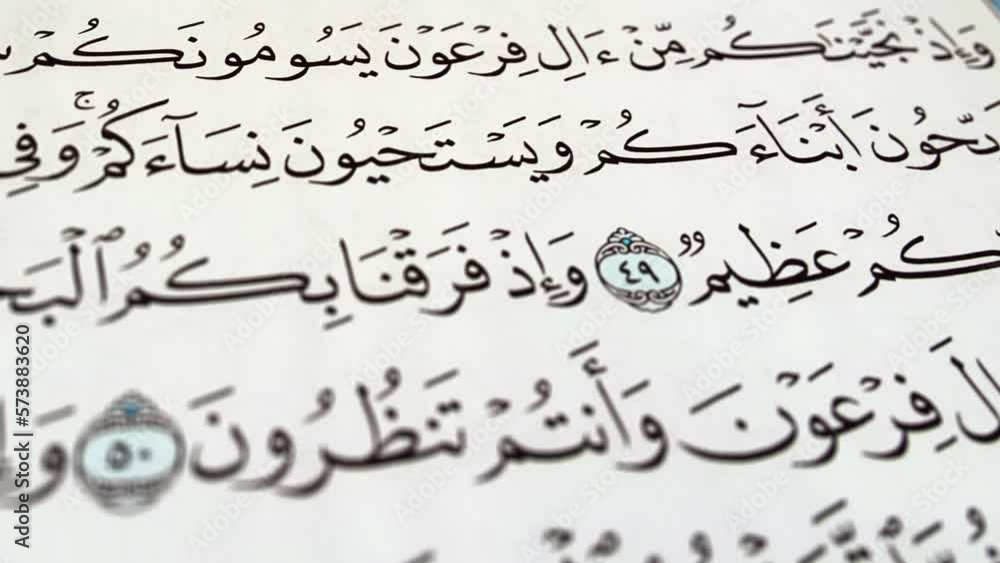 وَإِذْ نَجَّيْنَٰكُم مِّنْ ءَالِ فِرْعَوْنَ يَسُومُونَكُمْ
بِّحُونَ أَبْنَآءَكُمْ وَيَسْتَحْيُونَ نِسَآءَكُمْ ۚ وَفِى
كُمْ عَظِيمٌ ٤٩ وَإِذْ فَرَقْنَا بِكُمُ ٱلْبَحْ
الَ فِرْعَوْنَ وَأَنتُمْ تَنظُرُونَ ٥٠
Adobe Stock | #573883620